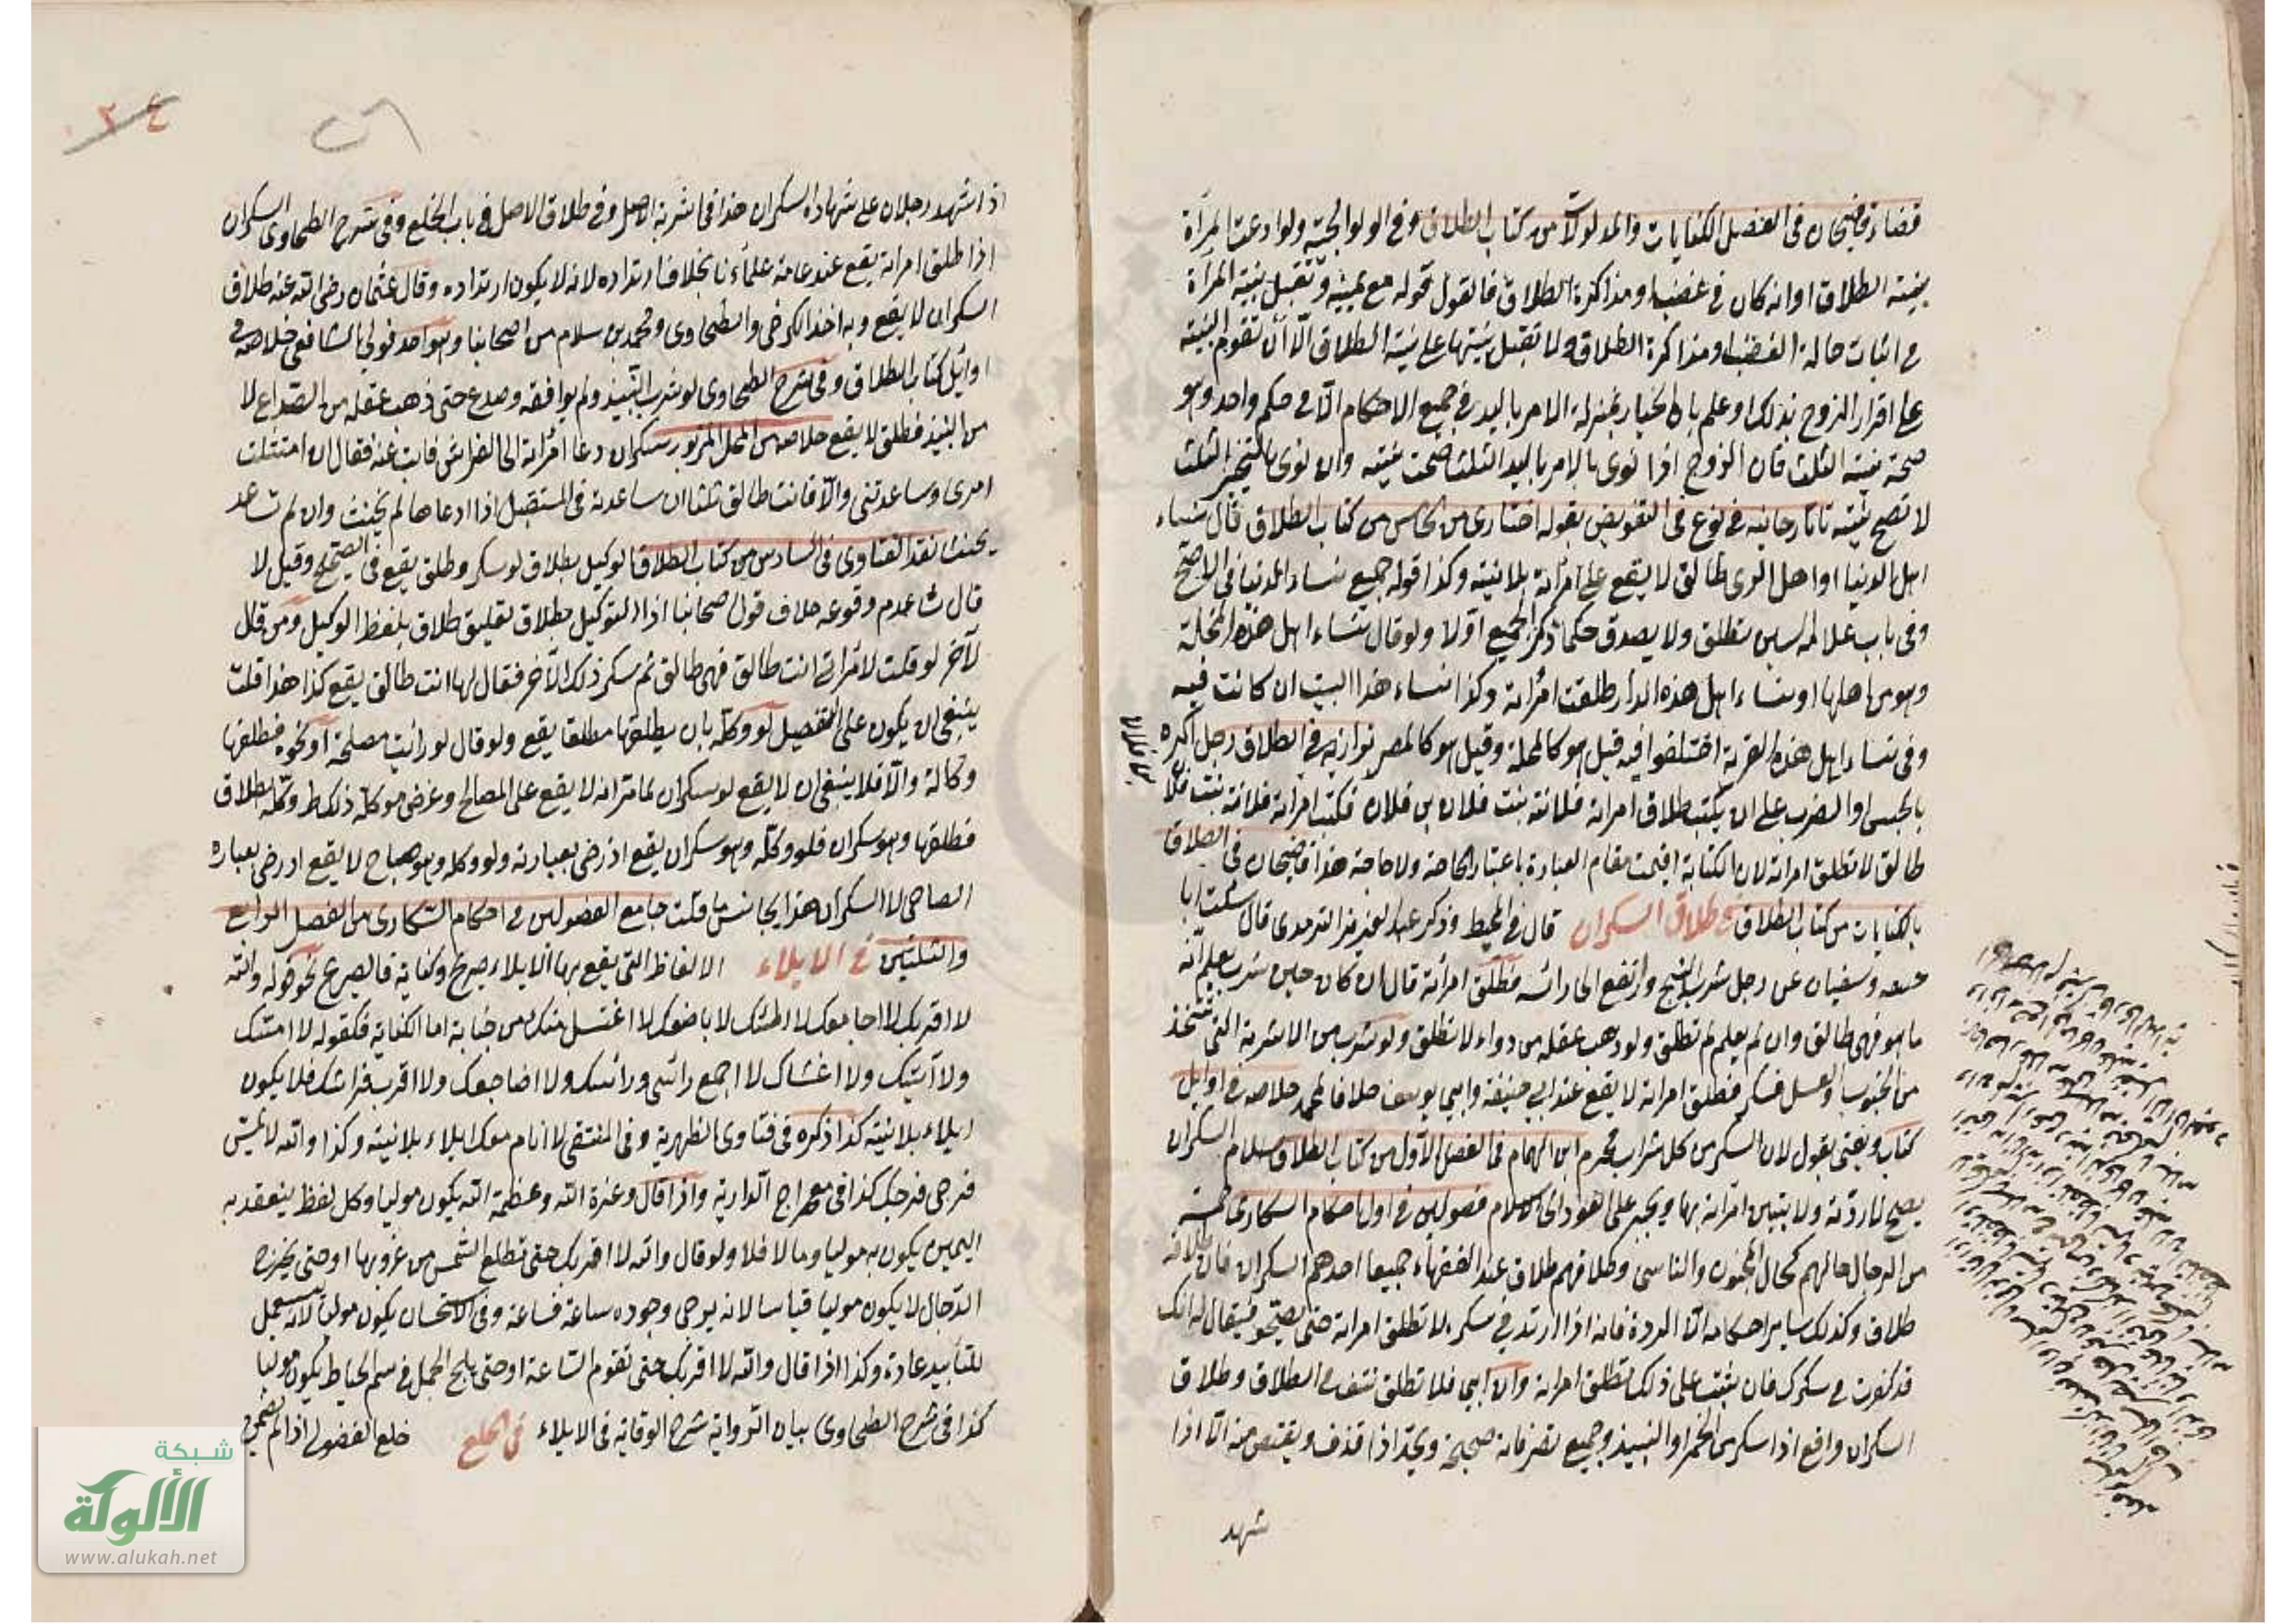 قضاء قاضيخان في الفصل الكنايات والمدلولات من كتاب الطلاق وفي الولوالجية ولو ادعت المرأة
بنية الطلاق او انه كان في غضب او مذاكرة الطلاق فالقول قوله مع يمينه وتقبل بينة المرأة
في اثبات حالة الغضب او مذاكرة الطلاق ولا تقبل بينتها على نية الطلاق الا ان تقوم البينة
على اقرار الزوج بذلك اوعلم بان الخيار بمنزلة الامر باليد في جميع الاحكام الا في حكم واحد وهو
صحة نية الثلث فان الزوج اذا نوى بالامر باليد الثلث صحت نيته وان نوى بالتخير الثلث
لا تصح نيته تاتارخانيه في نوع في التفويض بقوله اختاري من الخامس من كتاب الطلاق قال نساء
اهل الدنيا او اهل الرى طالق لا يقع على امرأته بلا نية وكذا قوله جميع نساء الدنيا في الاصح
وفي باب علا لم السين تطلق ولا يصدق حكما ذكر الجميع اولا ولو قال نساء اهل هذه المحلة
وهو من اهلها او نساء اهل هذه الدار طلقت امرأته وكذا نساء هذا البيت ان كانت فيه
وفي نساء اهل هذه القرية اختلفوا فيه قيل هو كالمحلة وقيل هو كالمصر بزازيه في الطلاق رجل اكره
بالحبس او الضرب على ان يكتب طلاق امرأته فلانة بنت فلان بن فلان فكتب امرأته فلانة بنت فلان
طالق لا تطلق امرأته لان الكتابة اقيمت مقام العبارة باعتبار الحاجة ولا حاجة هذا قاضيخان في الطلاق
بالكنايات من كتاب الطلاق في طلاق السكران قال في المحيط وذكر عبد العزيز الترمذى قال سئلت ابا
حنيفة وسفيان عن رجل شرب البنج وارتفع الى رأسه فطلق امرأته قال ان كان حين شرب يعلم انه
ما هو فهي طالق وان لم يعلم لم تطلق ولو ذهب عقله من دواء لا تطلق ولو شرب من الاشربة التي تتخذ
من الحبوب او العسل فسكر فطلق امرأته لا يقع عند ابي حنيفة وابي يوسف خلافا لمحمد خلاصه في اوايل
كتاب ويفتى بقول لان السكر من كل شراب محرم ابن الهمام في الفصل الاول من كتاب الطلاق سلام السكران
يصح لا ردته ولا تبين امرأته بها ويجبر على العود الى الاسلام فصولين في اول احكام السكارى خمسة
من الرجال حالهم كحال المجنون والناسى وطلاقهم طلاق عند الفقهاء جميعا احدهم السكران فان طلاقه
طلاق وكذلك ساير احكامه الا الردة فانه اذا ارتد في سكره لا تطلق امرأته حتى يصحو فيقال له انك
قد كفرت في سكرك فان ثبت على ذلك تطلق امرأته وان ابى فلا تطلق نتف في الطلاق وطلاق
السكران واقع اذا سكر من الخمر او النبيذ وجميع تصرفاته صحيحة ويحد اذا قذف ويقتص منه الا اذا
شهد
٢٤
٢٦
اذا شهد رجلان على شهادة السكران هذا في اشربة الاصل وفي طلاق الاصل في باب الخلع وفي شرح الطحاوى السكران
اذا طلق امرأته يقع عند عامة علماءنا بخلاف ارتداده لانه لا يكون ارتداده وقال عثمان رضى الله عنه طلاق
السكران لا يقع وبه اخذ الكرخى والطحاوى ومحمد بن سلام من اصحابنا وهو احد قولى الشافعى خلاصه في
اوائل كتاب الطلاق وفي شرح الطحاوى لو شرب النبيذ ولم يوافقه وصدع حتى ذهب عقله من الصداع لا
من النبيذ فطلق لا يقع خلاصه من المحل المزبور سكران دعا امرأته الى الفراش فابت عنه فقال ان امتثلت
امرى وساعدتنى والا فانت طالق ثلثا ان ساعدته في المستقبل اذا ادعاها لم يحنث وان لم تساعد
يحنث نقد الفتاوى في السادس من كتاب الطلاق الوكيل بطلاق لو سكر وطلق يقع في الصحيح وقيل لا
قال شا عدم وقوعه خلاف قول اصحابنا اذا التوكيل بطلاق تعليق طلاق بلفظ الوكيل ومن قال
لآخر لو قلت لامرأتى انت طالق فهي طالق ثم سكر ذلك الآخر فقال لها انت طالق يقع كذا هذا قلت
ينبغى ان يكون على التفصيل لو وكله بان يطلقها مطلقا يقع ولو قال لو رأيت مصلحة او نحوه فطلقها
وكالة والا فلا ينبغى ان لا يقع لو سكران لما مر انه لا يقع على المصالح وغرض موكله ذلك ط وكله بطلاق
فطلقها وهو سكران فلو وكله وهو سكران يقع اذ رضى بعبارته ولو وكله وهو صاح لا يقع اذ رضى بعباره
الصاحى لا السكران هذا يجانس ما قلت جامع الفصولين في احكام السكارى من الفصل الرابع
والثلثين في الايلاء الالفاظ التي يقع بها الايلاء صريح وكناية فالصريح نحو قوله والله
لا اقربك لا اجامعك لا اطئك لا اباضعك لا اغتسل منك من جنابة اما الكناية فكقوله لا امسك
ولا آتيتك ولا اغشاك لا اجمع رأسى ورأسك ولا اضاجعك ولا اقرب فراشك فلا يكون
ايلاء بلا نية كذا ذكره في فتاوى الظهيرية وفي المنتقى لا انام معك ايلاء بلا نية وكذا والله لا يمس
فرجى فرجك كذا في معراج الدراية واذا قال وعزة الله وعظمة الله يكون موليا وكل لفظ ينعقد به
اليمين يكون به موليا وما لا فلا ولو قال والله لا اقربك حتى تطلع الشمس من غروبها او حتى يخرج
الدجال لا يكون موليا قياسا لانه يرجى وجوده ساعة فساعة وفي الاستحسان يكون موليا لانه يستعمل
للتأبيد عادة وكذا اذا قال والله لا اقربك حتى تقوم الساعة او حتى يلج الجمل في سم الخياط يكون موليا
كذا في شرح الطحاوى بيان الرواية شرح الوقاية في الايلاء في الخلع خلع الفضولى اذا لم يضمن
شبكة
الألوكة
www.alukah.net